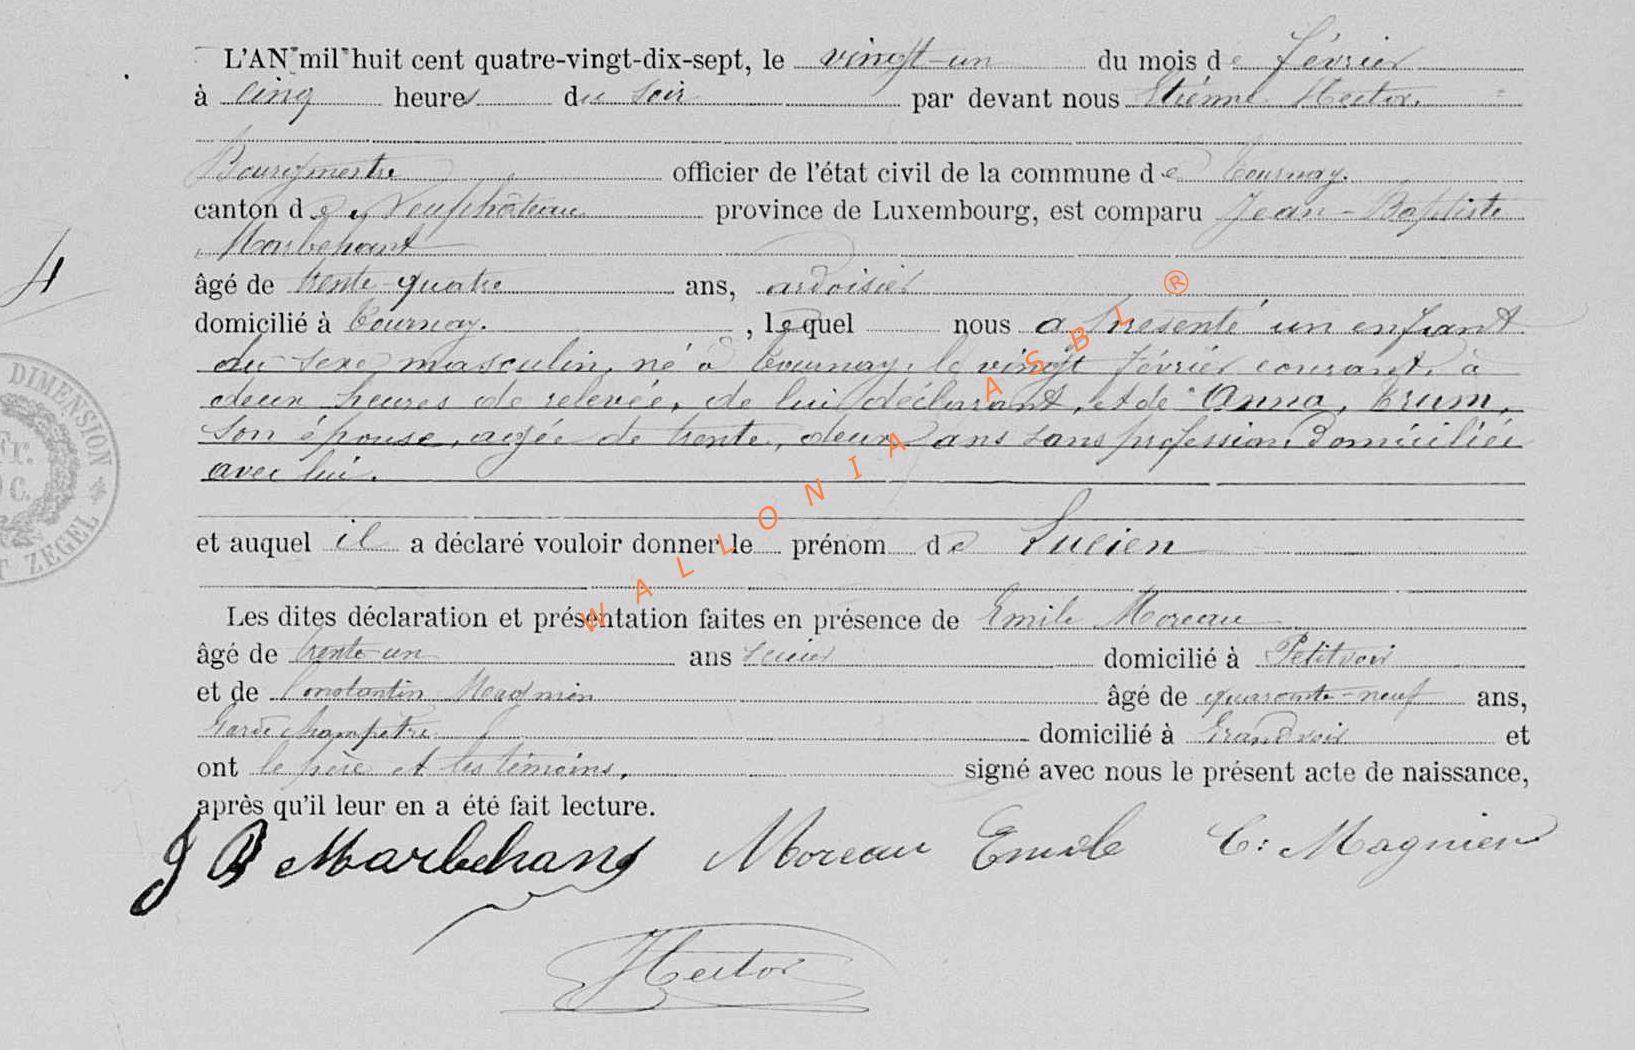 L'AN mil huit cent quatre-vingt-dix-sept, le vingt-un du mois de février
à cinq heures du soir par devant nous Etienne Hector,
Bourgmestre officier de l'état civil de la commune de Tournay.
canton de Neufchâteau province de Luxembourg, est comparu Jean-Baptiste
Marbehant
4
âgé de trente-quatre ans, ardoisier
domicilié à Tournay. , lequel nous a présenté un enfant
du sexe masculin, né à Tournay, le vingt février courant, à
deux heures de relevée, de lui déclarant, et de Anna, Trum,
son épouse, agée de trente, deux ans sans profession, domiciliée
avec lui.
DIMENSION
Fr.
C.
ZEGEL
et auquel il a déclaré vouloir donner le prénom de Lucien
Les dites déclaration et présentation faites en présence de Emile Moreau
âgé de trente-un ans domicilié à Petitvoir
et de Constantin Magnien âgé de quarante-neuf ans,
Garde champêtre domicilié à Grandvoir et
ont le père et les témoins, signé avec nous le présent acte de naissance,
après qu'il leur en a été fait lecture.
J B Marbehant Moreau Emile C: Magnien
Hector
WALLONIA ASBL ®